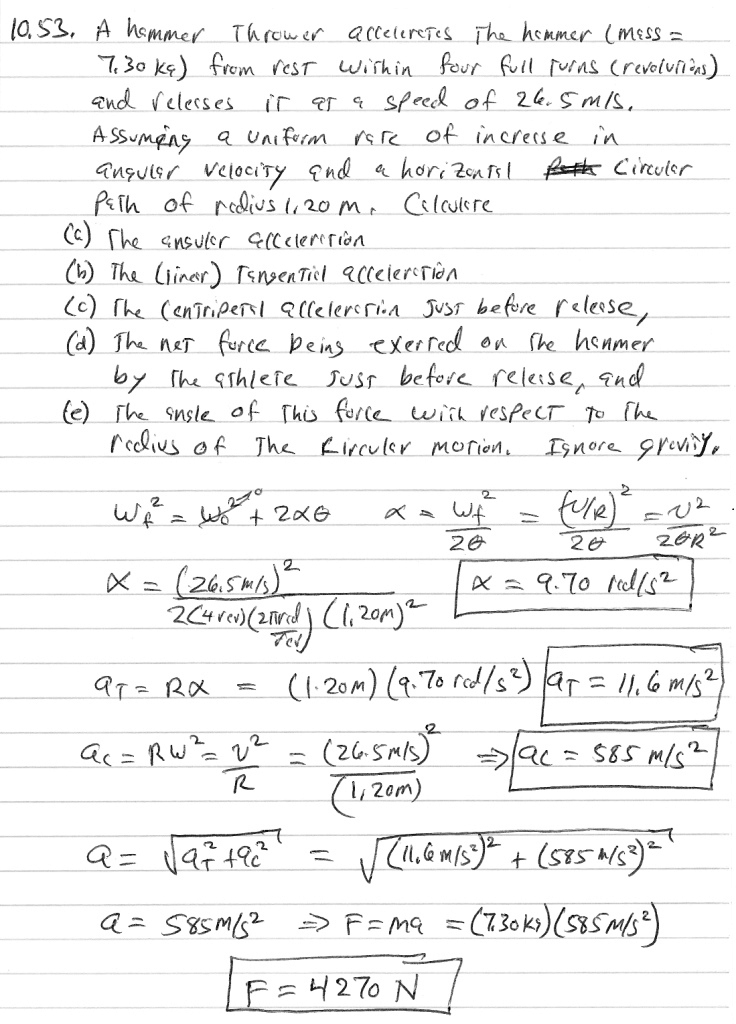 10.53. A hammer Thrower accelerates The hammer (mass =
7.30 kg) from rest within four full turns (revolutions)
and releases it at a speed of 26.5 m/s.
Assuming a uniform rate of increase in
angular velocity and a horizontal circular
path of radius 1.20 m. Calculate
(a) The angular acceleration
(b) The (linear) Tangential acceleration
(c) The centripetal acceleration just before release,
(d) The net force being exerted on the hammer
by the athlete just before release, and
(e) The angle of This force with respect to The
radius of The circular motion. Ignore gravity.
ω_f² = ω_0² + 2αθ α = ω_f²/2θ = (v/R)²/2θ = v²/2θR²
α = (26.5 m/s)² / 2(4 rev)(2π rad/rev)(1.20m)² α = 9.70 rad/s²
a_T = Rα = (1.20m)(9.70 rad/s²) a_T = 11.6 m/s²
a_c = Rω² = v²/R = (26.5m/s)²/(1.20m) ⇒ a_c = 585 m/s²
a = √(a_T² + a_c²) = √((11.6 m/s²)² + (585 m/s²)²)
a = 585 m/s² ⇒ F = ma = (7.30 kg)(585 m/s²)
F = 4270 N